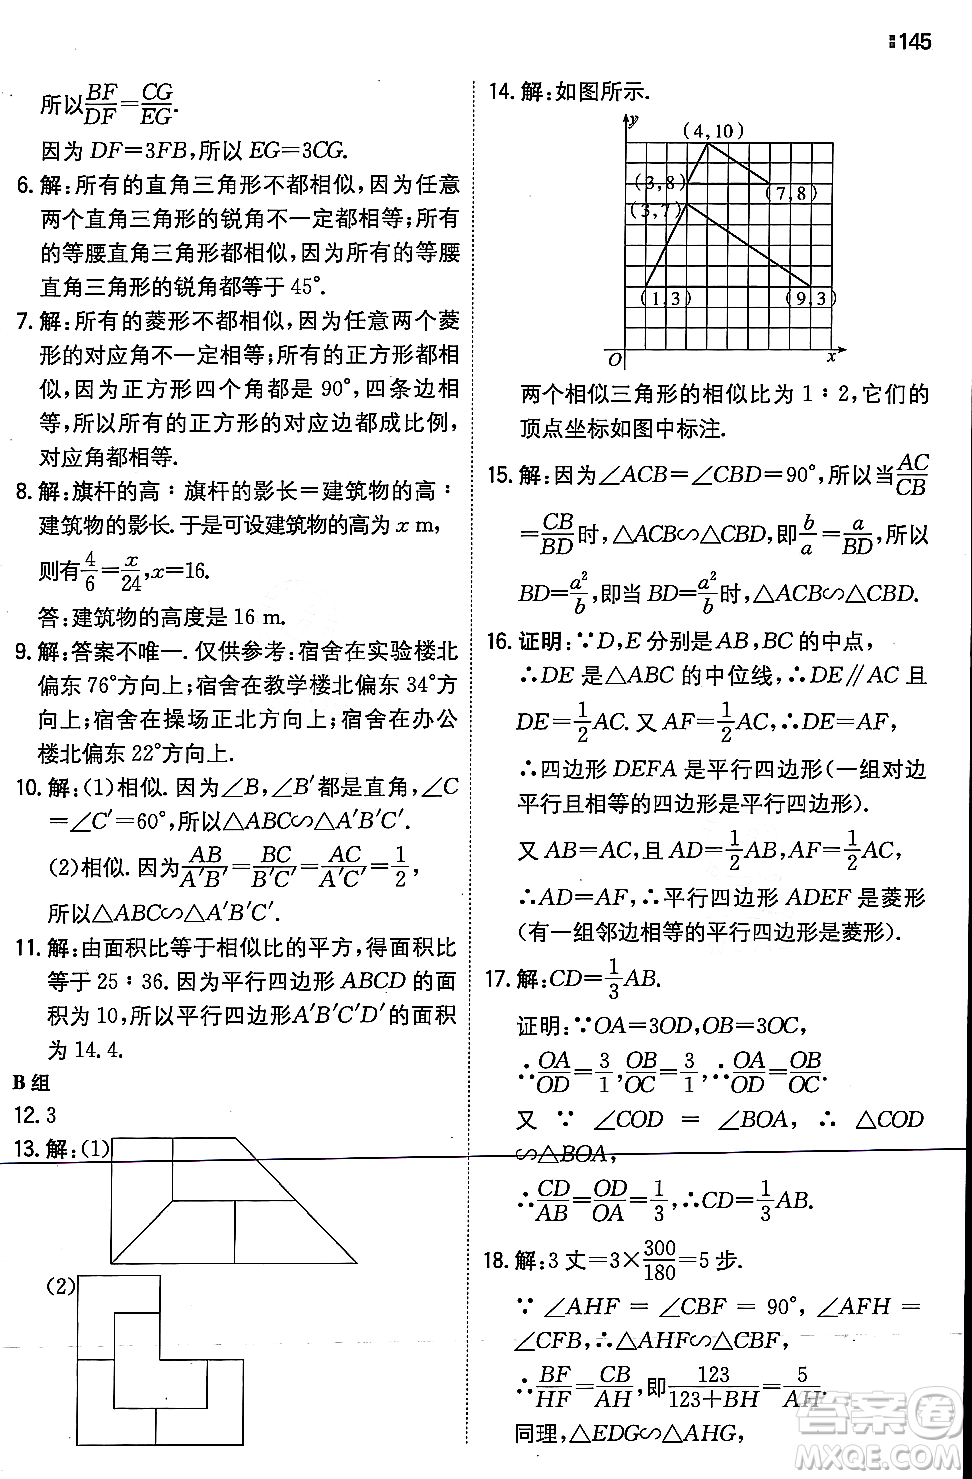 145
所以BF/DF=CG/EG.
因为 DF=3FB,所以 EG=3CG.
6. 解:所有的直角三角形不都相似,因为任意
两个直角三角形的锐角不一定都相等;所有
的等腰直角三角形都相似,因为所有的等腰
直角三角形的锐角都等于 45°.
7. 解:所有的菱形不都相似,因为任意两个菱
形的对应角不一定相等;所有的正方形都相
似,因为正方形四个角都是 90°,四条边相
等,所以所有的正方形的对应边都成比例,
对应角都相等.
8. 解:旗杆的高∶旗杆的影长=建筑物的高∶
建筑物的影长.于是可设建筑物的高为 x m,
则有4/6=x/24,x=16.
答:建筑物的高度是 16 m.
9. 解:答案不唯一.仅供参考:宿舍在实验楼北
偏东 76°方向上;宿舍在教学楼北偏东 34°方
向上;宿舍在操场正北方向上;宿舍在办公
楼北偏东 22°方向上.
10. 解:(1)相似.因为∠B,∠B′都是直角,∠C
=∠C′=60°,所以△ABC∽△A′B′C′.
(2)相似.因为AB/A′B′=BC/B′C′=AC/A′C′=1/2,
所以△ABC∽△A′B′C′.
11. 解:由面积比等于相似比的平方,得面积比
等于 25∶36.因为平行四边形 ABCD 的面
积为 10,所以平行四边形A′B′C′D′的面积
为 14.4.
B 组
12. 3
13. 解:(1)
(2)
14. 解:如图所示.
y
(4,10)
(3,8)
(7,8)
(3,7)
(1,3)
(9,3)
O
x
两个相似三角形的相似比为 1∶2,它们的
顶点坐标如图中标注.
15. 解:因为∠ACB=∠CBD=90°,所以当AC/CB
=CB/BD时,△ACB∽△CBD,即b/a=a/BD,所以
BD=a²/b,即当 BD=a²/b时,△ACB∽△CBD.
16. 证明:∵D,E 分别是 AB,BC 的中点,
∴DE 是△ABC 的中位线,∴DE∥AC 且
DE=1/2AC.又 AF=1/2AC,∴DE=AF,
∴四边形 DEFA 是平行四边形(一组对边
平行且相等的四边形是平行四边形).
又 AB=AC,且 AD=1/2AB,AF=1/2AC,
∴AD=AF,∴平行四边形 ADEF 是菱形
(有一组邻边相等的平行四边形是菱形).
17. 解:CD=1/3AB.
证明:∵OA=3OD,OB=3OC,
∴OA/OD=3/1,OB/OC=3/1,∴OA/OD=OB/OC.
又 ∵ ∠COD = ∠BOA, ∴ △COD
∽△BOA,
∴CD/AB=OD/OA=1/3,∴CD=1/3AB.
18. 解:3 丈=3×300/180=5 步.
∵ ∠AHF = ∠CBF = 90°, ∠AFH =
∠CFB,∴△AHF∽△CBF,
∴BF/HF=CB/AH,即123/(123+BH)=5/AH.
同理,△EDG∽△AHG,
答案圈
MXQE.COM